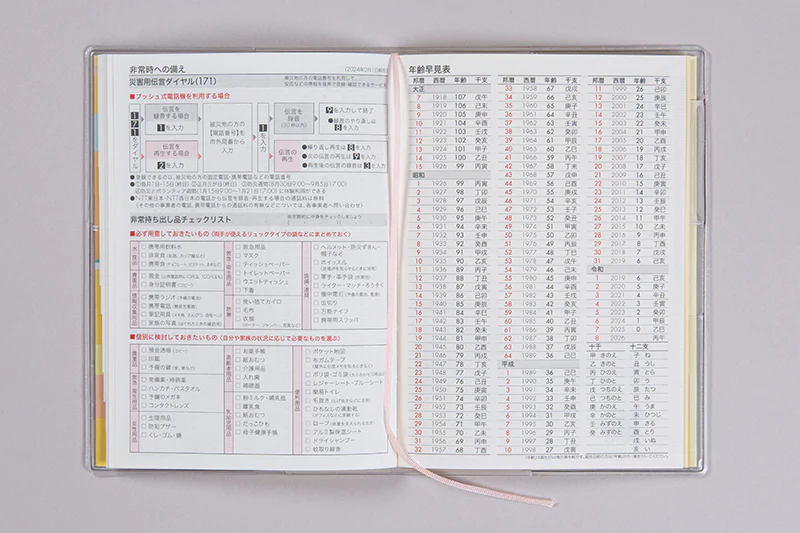 非常時への備え
災害用伝言ダイヤル(171)
■プッシュ式電話機を利用する場合
171をダイヤル
伝言を
録音する場合
1を入力
伝言を
再生する場合
2を入力
被災地の方の
【電話番号】を
市外局番から
入力
1を入力
伝言を
録音
(30秒以内)
9を入力して終了
●録音のやり直しは
8を入力
伝言の
再生
●繰り返し再生は8を入力
●次の伝言の再生は9を入力
●再生後の伝言の録音は3を入力
非常持ち出し品チェックリスト
■必ず用意しておきたいもの(両手が使えるリュックタイプの袋などにまとめておく)
□携帯用飲料水
□非常食
□携帯食
□現金
□身分証明書
□携帯ラジオ
□携帯電話
□筆記用具
□家族の写真
□救急用品
□マスク
□ティッシュペーパー
□トイレットペーパー
□ウエットティッシュ
□下着
□使い捨てカイロ
□毛布
□衣類
□ヘルメット・防災ずきん・
帽子など
□ホイッスル
□軍手・革手袋
□ライター・マッチ・ろうそく
□懐中電灯
□缶切り
□万能ナイフ
□携帯用スリッパ
■個別に検討しておきたいもの(自分や家族の状況に応じて必要なものを選ぶ)
□預金通帳
□印鑑
□予備の鍵
□常備薬・持病薬
□ハンカチ・バスタオル
□予備のメガネ
□コンタクトレンズ
□生理用品
□防犯ブザー
□くし・ゴム・鏡
□お薬手帳
□紙おむつ
□介護用品
□入れ歯
□補聴器
□粉ミルク・哺乳瓶
□離乳食
□紙おむつ
□だっこひも
□母子健康手帳
□ポケット地図
□布ガムテープ
□ポリ袋・ゴミ袋
□レジャーシート・ブルーシート
□簡易トイレ
□毛抜き
□ひもなしの運動靴
□ロープ
□アルミ製保温シート
□ドライシャンプー
□蚊取り線香
年齢早見表
邦暦 西暦 年齢 干支
大正
7 1918 107 戊午
8 1919 106 己未
9 1920 105 庚申
10 1921 104 辛酉
11 1922 103 壬戌
12 1923 102 癸亥
13 1924 101 甲子
14 1925 100 乙丑
15 1926 99 丙寅
昭和
1 1926 99 丙寅
2 1927 98 丁卯
3 1928 97 戊辰
4 1929 96 己巳
5 1930 95 庚午
6 1931 94 辛未
7 1932 93 壬申
8 1933 92 癸酉
9 1934 91 甲戌
10 1935 90 乙亥
11 1936 89 丙子
12 1937 88 丁丑
13 1938 87 戊寅
14 1939 86 己卯
15 1940 85 庚辰
16 1941 84 辛巳
17 1942 83 壬午
18 1943 82 癸未
19 1944 81 甲申
20 1945 80 乙酉
21 1946 79 丙戌
22 1947 78 丁亥
23 1948 77 戊子
24 1949 76 己丑
25 1950 75 庚寅
26 1951 74 辛卯
27 1952 73 壬辰
28 1953 72 癸巳
29 1954 71 甲午
30 1955 70 乙未
31 1956 69 丙申
32 1957 68 丁酉
邦暦 西暦 年齢 干支
33 1958 67 戊戌
34 1959 66 己亥
35 1960 65 庚子
36 1961 64 辛丑
37 1962 63 壬寅
38 1963 62 癸卯
39 1964 61 甲辰
40 1965 60 乙巳
41 1966 59 丙午
42 1967 58 丁未
43 1968 57 戊申
44 1969 56 己酉
45 1970 55 庚戌
46 1971 54 辛亥
47 1972 53 壬子
48 1973 52 癸丑
49 1974 51 甲寅
50 1975 50 乙卯
51 1976 49 丙辰
52 1977 48 丁巳
53 1978 47 戊午
54 1979 46 己未
55 1980 45 庚申
56 1981 44 辛酉
57 1982 43 壬戌
58 1983 42 癸亥
59 1984 41 甲子
60 1985 40 乙丑
61 1986 39 丙寅
62 1987 38 丁卯
63 1988 37 戊辰
64 1989 36 己巳
平成
1 1989 36 己巳
2 1990 35 庚午
3 1991 34 辛未
4 1992 33 壬申
5 1993 32 癸酉
6 1994 31 甲戌
7 1995 30 乙亥
8 1996 29 丙子
9 1997 28 丁丑
10 1998 27 戊寅
邦暦 西暦 年齢 干支
11 1999 26 己卯
12 2000 25 庚辰
13 2001 24 辛巳
14 2002 23 壬午
15 2003 22 癸未
16 2004 21 甲申
17 2005 20 乙酉
18 2006 19 丙戌
19 2007 18 丁亥
20 2008 17 戊子
21 2009 16 己丑
22 2010 15 庚寅
23 2011 14 辛卯
24 2012 13 壬辰
25 2013 12 癸巳
26 2014 11 甲午
27 2015 10 乙未
28 2016 9 丙申
29 2017 8 丁酉
30 2018 7 戊戌
31 2019 6 己亥
令和
1 2019 6 己亥
2 2020 5 庚子
3 2021 4 辛丑
4 2022 3 壬寅
5 2023 2 癸卯
6 2024 1 甲辰
7 2025 0 乙巳
8 2026 丙午
十干 十二支
甲 きのえ 子 ね
乙 きのと 丑 うし
丙 ひのえ 寅 とら
丁 ひのと 卯 う
戊 つちのえ 辰 たつ
己 つちのと 巳 み
庚 かのえ 午 うま
辛 かのと 未 ひつじ
壬 みずのえ 申 さる
癸 みずのと 酉 とり
戌 いぬ
亥 い